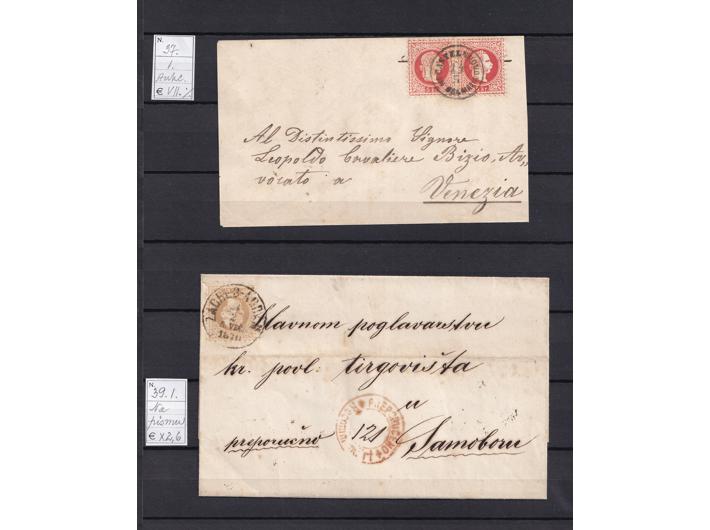 N.
37.
1.
€ VII.
Al Distintissimo Signore
Leopoldo Cavaliere Bizio, Av„
vocato a
Venezia
ZAGREB-AGRAM
1870
Slavnom poglavarstvu
kr. povl. tirgovišta
u
preporučno 121 Samoboru
N.
39.1.
Na
pismu
€ X2,6